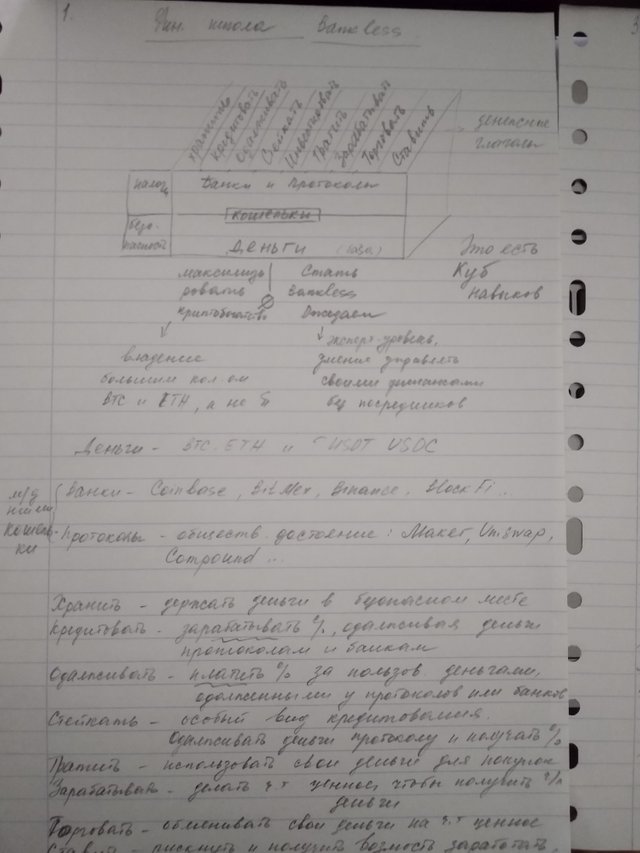 1.
Фин. школа Bankless
3
хранить
кредитовать
одалживать
Стейкать
Инвестировать
Тратить
Зарабатывать
Торговать
Ставить
денежные
глаголы
налоги
Банки и Протоколы
кошельки
безо-
пасность
Деньги (база)
Это есть
Куб
навыков
максимизи
ровать
криптобогатство
Стать
Bankless
Джедаем
владение
большим кол-ом
BTC и ETH, а не
эксперт. уровень,
умение управлять
своими финансами
без посредников
Деньги - BTC ETH и USDT USDC
м/д
ними
кошель-
ки
Банки - Coinbase, BitMex, Binance, BlockFi..
Протоколы - обществ. достояние: Maker, Uniswap,
Compound...
Хранить - держать деньги в безопасном месте
Кредитовать - зарабатывать %, одалживая деньги
протоколам и банкам
Одалживать - платить % за пользов. деньгами,
одолженными у протоколов или банков
Стейкать - особый вид кредитования.
Одалживать деньги протоколу и получать %
Тратить - использовать свои деньги для покупок
Зарабатывать - делать ч.т ценное, чтобы получить
деньги
Торговать - обменивать свои деньги на ч.т ценное
Ставить - рискнуть и получить возмость заработать.